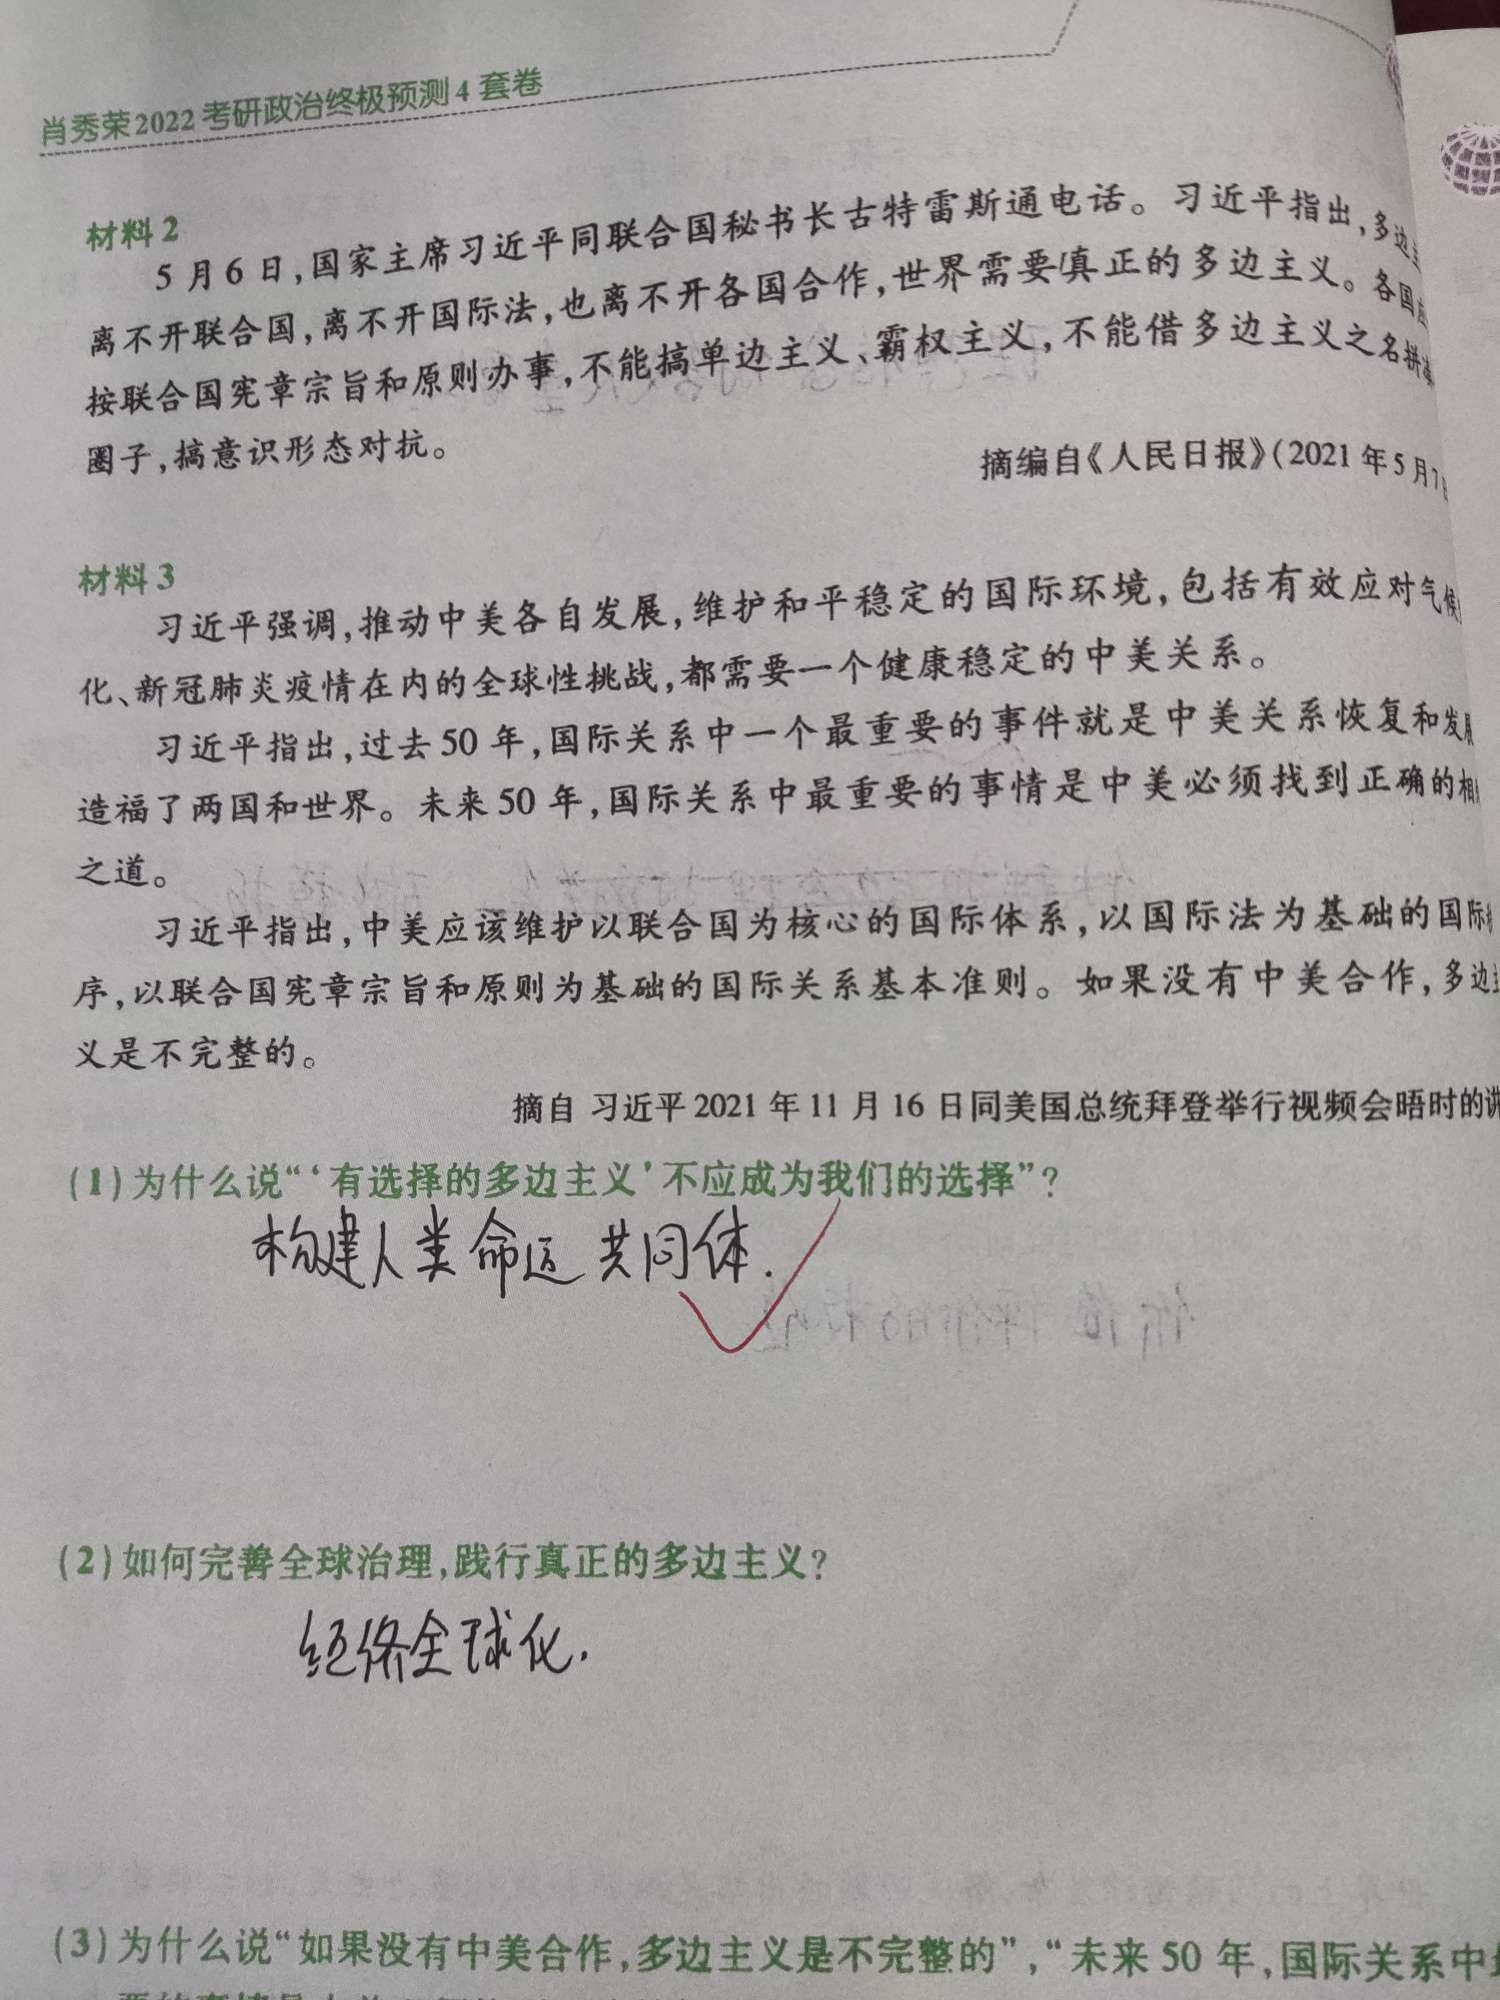 肖秀荣2022考研政治终极预测4套卷
材料2
5月6日,国家主席习近平同联合国秘书长古特雷斯通电话。习近平指出,多边
离不开联合国,离不开国际法,也离不开各国合作,世界需要真正的多边主义。各国应
按联合国宪章宗旨和原则办事,不能搞单边主义、霸权主义,不能借多边主义之名拼凑
圈子,搞意识形态对抗。
摘编自《人民日报》(2021年5月7日
材料3
习近平强调,推动中美各自发展,维护和平稳定的国际环境,包括有效应对气候
化、新冠肺炎疫情在内的全球性挑战,都需要一个健康稳定的中美关系。
习近平指出,过去50年,国际关系中一个最重要的事件就是中美关系恢复和发展
造福了两国和世界。未来50年,国际关系中最重要的事情是中美必须找到正确的相
之道。
习近平指出,中美应该维护以联合国为核心的国际体系,以国际法为基础的国际
序,以联合国宪章宗旨和原则为基础的国际关系基本准则。如果没有中美合作,多边
义是不完整的。
摘自 习近平2021年11月16日同美国总统拜登举行视频会晤时的讲
(1)为什么说“‘有选择的多边主义’不应成为我们的选择”?
构建人类命运共同体.
(2)如何完善全球治理,践行真正的多边主义?
经济全球化.
(3)为什么说“如果没有中美合作,多边主义是不完整的”,“未来50年,国际关系中